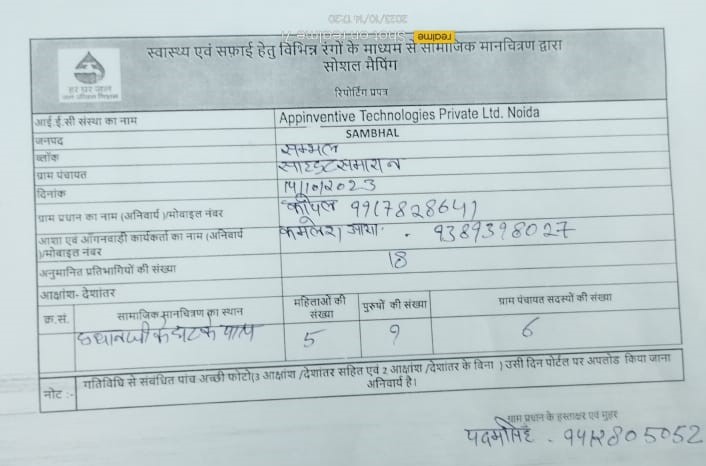 2023/10/14 12:20
realme Shot on realme 7i
स्वास्थ्य एवं सफ़ाई हेतु विभिन्न रंगों के माध्यम से सामाजिक मानचित्रण द्वारा
सोशल मैपिंग
हर घर जल
जल जीवन मिशन
रिपोर्टिंग प्रपत्र
आई.ई.सी संस्था का नाम Appinventive Technologies Private Ltd. Noida
जनपद SAMBHAL
ब्लॉक सम्भल
ग्राम पंचायत
दिनांक 14/10/2023
ग्राम प्रधान का नाम (अनिवार्य )/मोबाइल नंबर 9917828641
आशा एवं आँगनवाड़ी कार्यकर्ता का नाम (अनिवार्य )/मोबाइल नंबर कमलेश आशा. 9389398027
अनुमानित प्रतिभागियों की संख्या 18
आक्षांश- देशांतर
क्र.सं. सामाजिक मानचित्रण का स्थान महिलाओं की संख्या पुरुषों की संख्या ग्राम पंचायत सदस्यों की संख्या
के पास 5 9 6
नोट :- गतिविधि से संबंधित पांच अच्छी फोटो(3 आक्षांश /देशांतर सहित एवं 2 आक्षांश /देशांतर के बिना ) उसी दिन पोर्टल पर अपलोड किया जाना
अनिवार्य है।
ग्राम प्रधान के हस्ताक्षर एवं मुहर
पदमसिंह - 9412805052